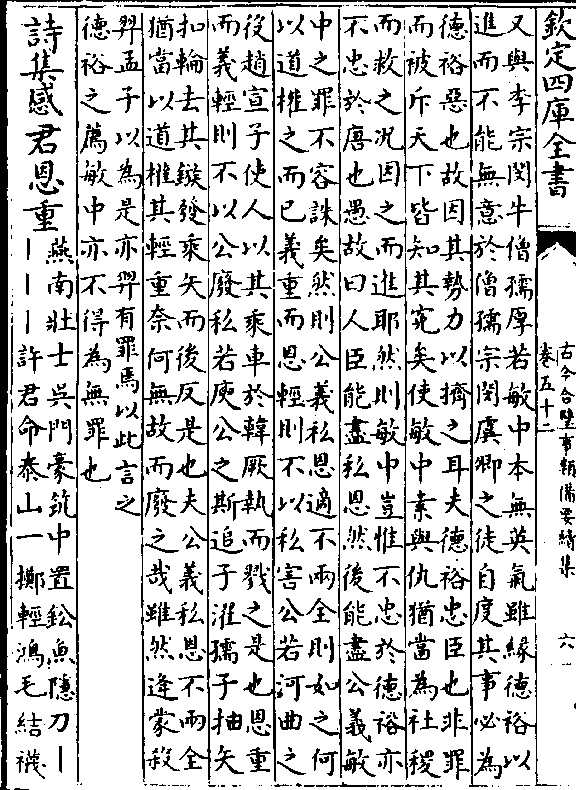 欽定四庫全書
古今合璧事類備要續集
卷五十二
六
又與李宗閔牛僧孺厚若敏中本無英氣雖緣德裕以
進而不能無意於僧孺宗閔虞卿之徒自度其事必為
德裕惡也故因其勢力以擠之耳夫德裕忠臣也非罪
而被斥天下皆知其寃矣使敏中素與仇猶當為社稷
而救之况因之而進耶然則敏中豈惟不忠於德裕亦
不忠於唐也愚故曰人臣能盡私恩然後能盡公義敏
中之罪不容誅矣然則公義私恩適不兩全則如之何
以道權之而已義重而恩輕則不以私害公若河曲之
後趙宣子使人以其乘車於韓厥執而戮之是也恩重
而義輕則不以公廢私若庾公之斯追子濯孺子抽矢
扣輪去其鏃發乘矢而後反是也夫公義私恩不兩全
猶當以道權其輕重奈何無故而廢之哉雖然逄蒙殺
羿孟子以為是亦羿有罪焉以此言之
德裕之薦敏中亦不得為無罪也
詩集感君恩重
燕南壯士吳門豪筑中置鈆魚隱刀丨
丨丨丨許君命泰山一擲輕鴻毛結襪